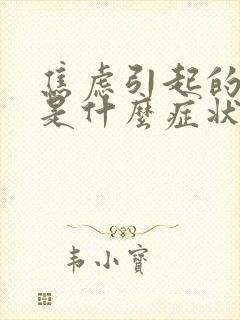 焦虑引起的
是什麼症状
韦小宝